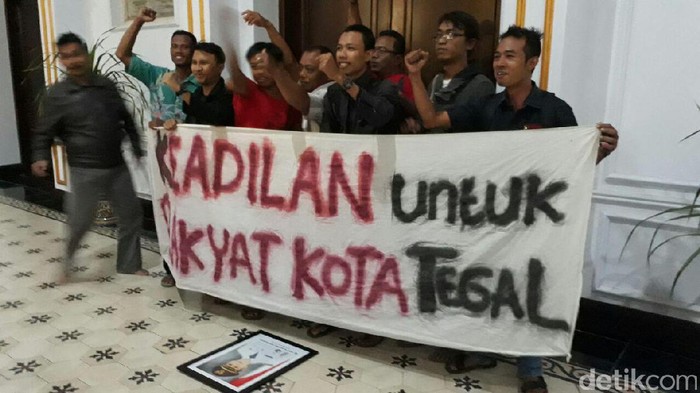 KEADILAN untuk
RAKYAT KOTA TEGAL
detikcom